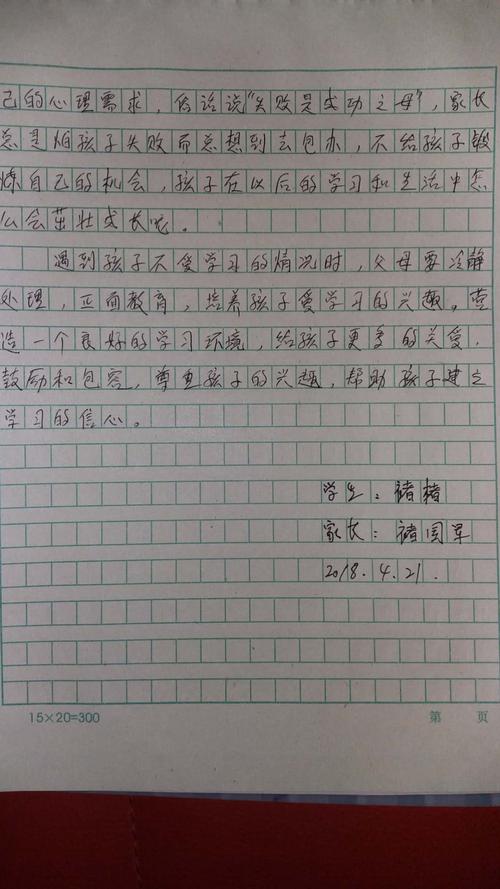 己的心理需求，俗话说“失败是成功之母”，家长
总是怕孩子失败而总想到去包办，不给孩子锻
炼自己的机会，孩子在以后的学习和生活中怎
么会茁壮成长呢。
遇到孩子不爱学习的情况时，父母要冷静
处理，正面教育，培养孩子爱学习的兴趣。营
造一个良好的学习环境，给孩子更多的关爱，
鼓励和包容，尊重孩子的兴趣，帮助孩子建立
学习的信心。
学生：褚
家长：褚国军
2018.4.21.
15×20=300
第 页